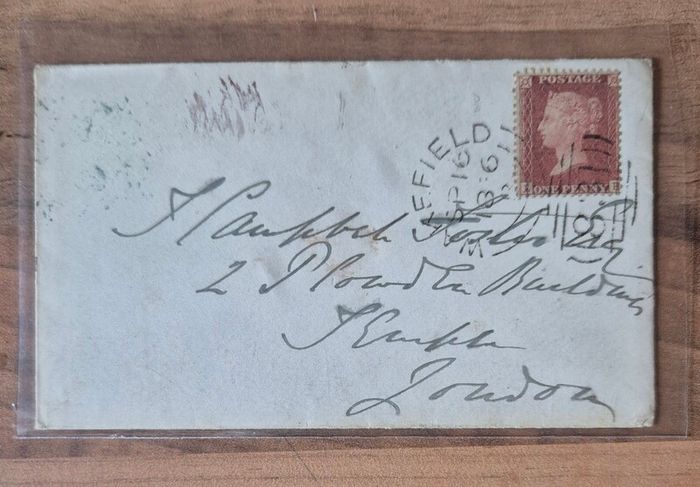 POSTAGE
ONE PENNY
EFIELD
SP 16
61
J Campbell Foster Esq
2 Plowden Buildings
Temple
London